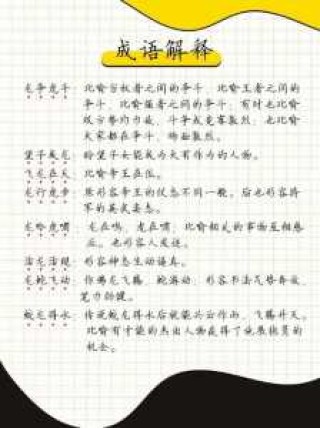 成语解释
龙争虎斗：比喻当权者之间的争斗，比喻王者之间的
争斗，比喻强者之间的争斗；有时也比喻
双方势均力敌，斗争或竞赛激烈；也比喻
大家都在争斗，场面激烈。
望子成龙：盼望子女能成为大有作为的人物。
飞龙在天：比喻帝王在位。
龙行虎步：原形容帝王的仪态不同一般。后也形容将
军的英武姿态。
龙吟虎啸：龙在鸣，虎在啸，比喻相关的事物互相感
应。也形容人发迹。
活龙活现：形容神态生动逼真。
龙蛇飞动：仿佛龙飞腾，蛇游动；形容书法气势奔放，
笔力劲健。
蛟龙得水：传说蛟龙得水后就能兴云作雨，飞腾升天。
比喻有才能的杰出人物获得了施展抱负的
机会。